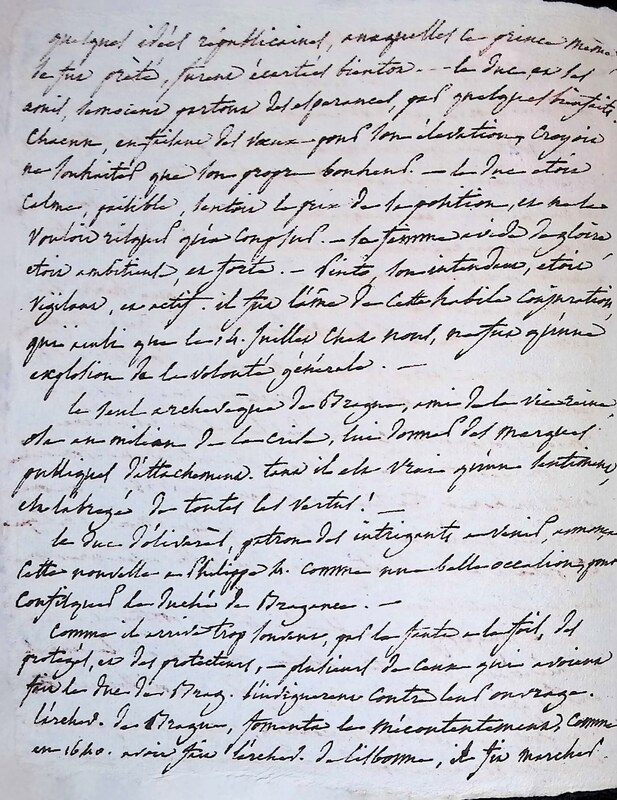 quelques idées républicaines, auxquelles ce prince même
se fut prêté, furent écartées bientot. — le duc, et ses
amis, semoient partout des esperances, par quelques bienfaits
Chacun, en faisant des vœux pour son élévation, croyoit
ne souhaiter que son propre bonheur. — le duc etoit
Calme, paisible, sentoit le prix de sa position, et ne la
vouloit risquer qu'à coup sur. — sa femme avide de gloire
etoit ambitieuse, et forte. — Pinto, son intendant, etoit
vigilant, et actif. il fut l'âme de cette habile conjuration,
qui ainsi que le 14. juillet chez nous, ne fut qu'une
explosion de la volonté générale. —
le seul archevêque de Brague, ami de la vice reine
osa au milieu de la crise, lui donner des marques
publiques d'attachement. tant il est vrai qu'un sentiment,
est l'abregé de toutes les vertus! —
le duc d'olivarès, patron des intrigants avenir, annonça
cette nouvelle a Philippe 4. comme une belle occasion, pour
confisquer le duché de Bragance. —
Comme il arrive trop souvent, par la faute a la fois, des
protégés, et des protecteurs, — plusieurs de ceux qui avoient
fait le duc de Brag. s'indignerent contre leur ouvrage.
l'archev. de Brague, fomenta les mécontentements, comme
en 1640. avoit fait l'archev. de Lisbonne, il fit marcher